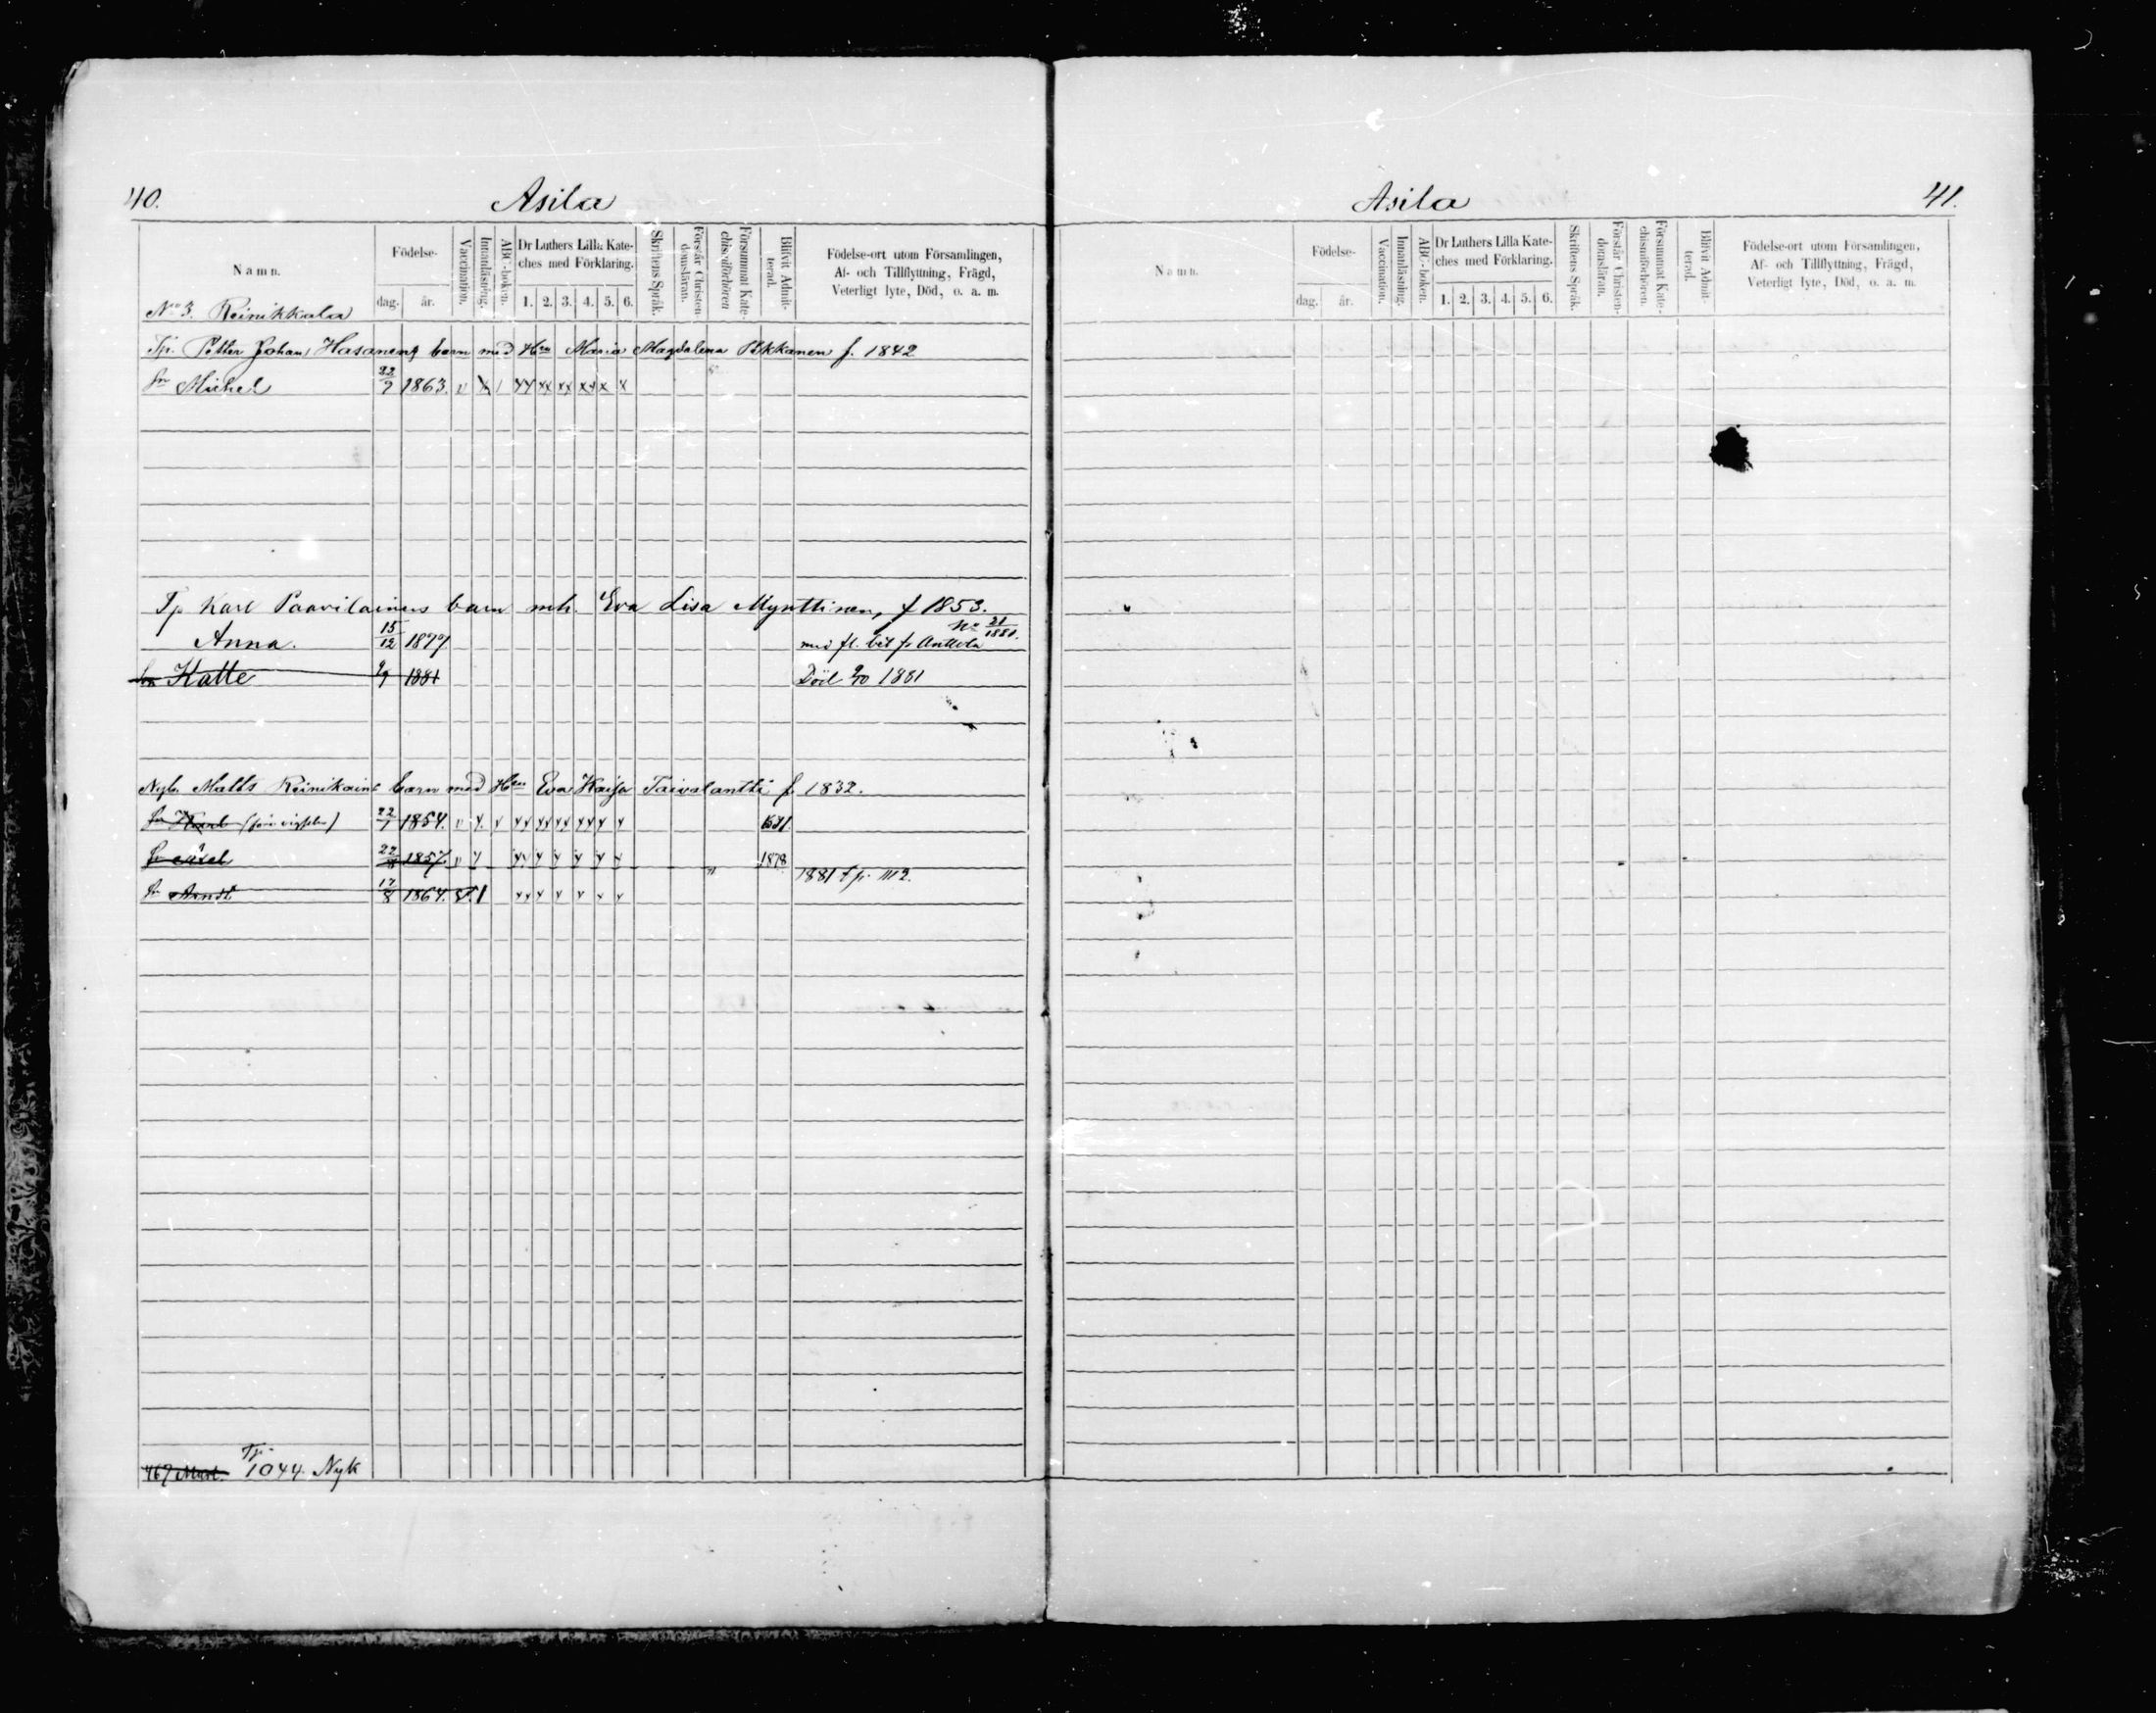 40. Asila
Namn. Födelse- dag. år. Vaccination. Innanläsning. ABC-boken. Dr Luthers Lilla Kate-ches med Förklaring. 1. 2. 3. 4. 5. 6. Skriftens Språk. Förstår Christen-domsläran. Försummat Kate-chismiförhören Blifvit Admit-terad. Födelse-ort utom Församlingen, Af- och Tillflyttning, Frägd, Veterligt lyte, Död, o. a. m.
No 3. Reinikkala
Tp. Petter Johan Hasanens barn med Hu Maria Magdalena Pökkanen f. 1842
Sn Michel 23/9 1863.
Tp Karl Paavilainens barn mh. Eva Lisa Mynttinen, f 1853.
Anna. 15/12 1879 med fl. bet fr Anttola No 21/1881.
Sn Kalle 9/9 1881 Död 9/10 1881
Nyb. Matts Reinikains barn med Hu Eva Kaisa Taivalantti f. 1832.
Sn Karl 22/1 1854. 1881
22/8 1857. 1878
1881 t p. 1112.
Sn 17/8 1864.
467 Tp 1044. Nyk
Asila 41.
Namn. Födelse- dag. år. Vaccination. Innanläsning. ABC-boken. Dr Luthers Lilla Kate-ches med Förklaring. 1. 2. 3. 4. 5. 6. Skriftens Språk. Förstår Christen-domsläran. Försummat Kate-chismiförhören. Blifvit Admit-terad. Födelse-ort utom Församlingen, Af- och Tillflyttning, Frägd, Veterligt lyte, Död, o. a. m.